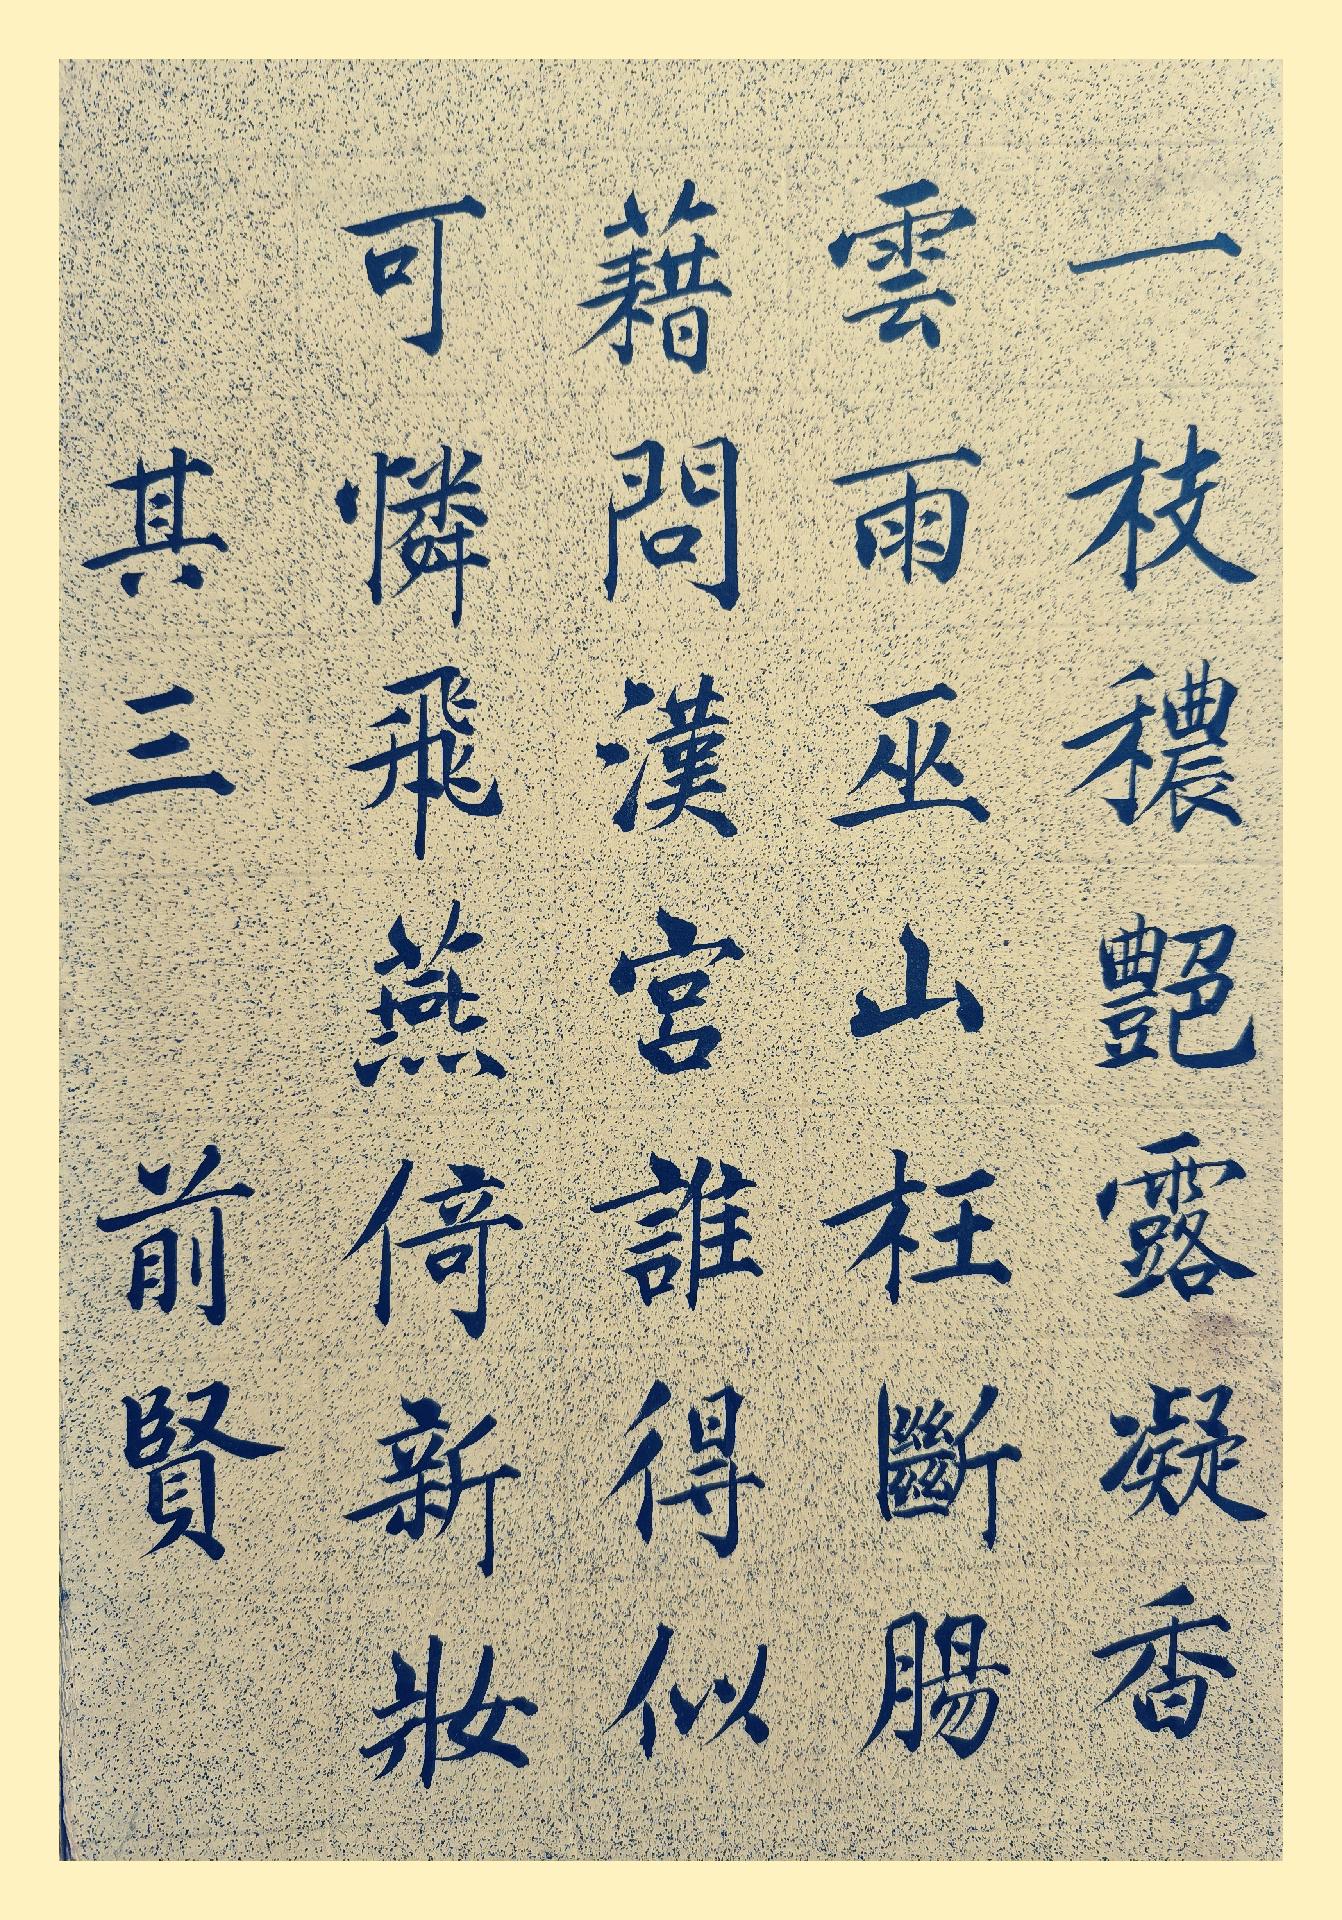 一枝穠艷露凝香
雲雨巫山枉斷腸
藉問漢宮誰得似
可憐飛燕倚新妝
其三 前賢